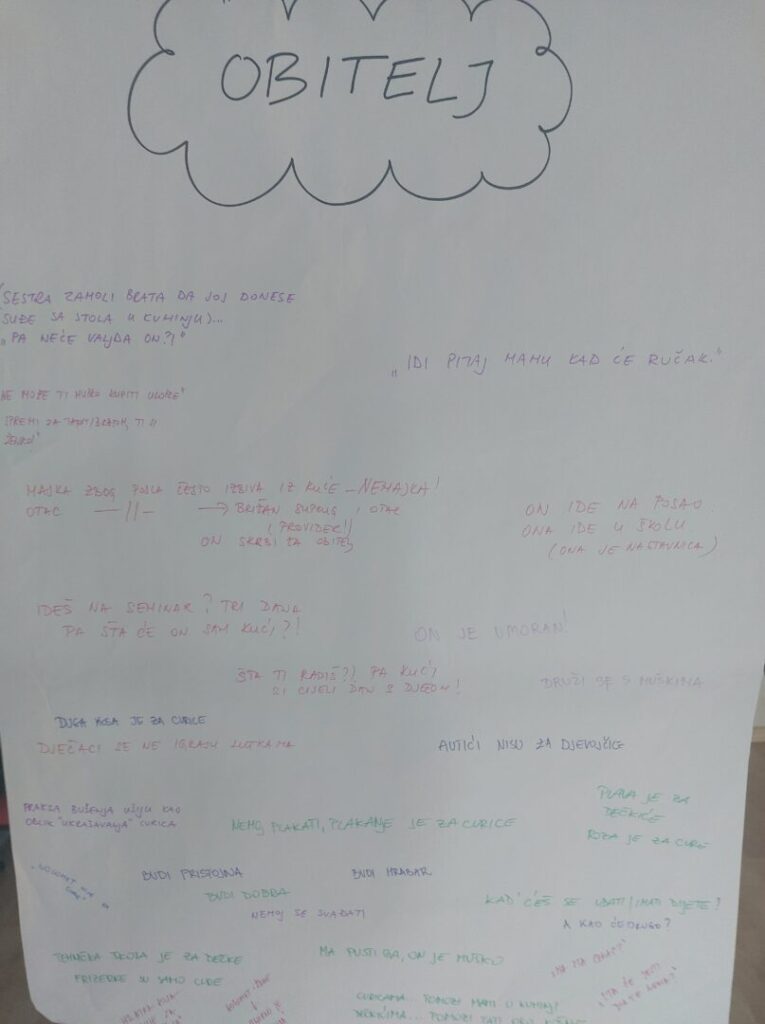 OBITELJ
(SESTRA ZAMOLI BRATA DA JOJ DONESE
SUĐE SA STOLA U KUHINJU)...
„PA NEĆE VALJDA ON?!"
„IDI PITAJ MAMU KAD ĆE RUČAK."
NE MOŽE TI MUŠKO KUPITI ULOŠKE"
SPREMI ZA TATOM/BRATOM, TI SI
ŽENSKO"
MAJKA ZBOG POSLA ČESTO IZBIVA IZ KUĆE - NEMAJKA!
OTAC —//— → BRIŽAN SUPRUG I OTAC
(PROVIDER!)
ON SKRBI ZA OBITELJ
ON IDE NA POSAO
ONA IDE U ŠKOLU
(ONA JE NASTAVNICA)
IDEŠ NA SEMINAR? TRI DANA
PA ŠTA ĆE ON SAM KUĆI?!
ON JE UMORAN!
ŠTA TI RADIŠ?! PA KUĆI
SI CIJELI DAN S DJECOM!
DRUŽI SE S MUŠKIMA
DUGA KOSA JE ZA CURICE
DJEČACI SE NE IGRAJU LUTKAMA
AUTIĆI NISU ZA DJEVOJČICE
PRAKSA BUŠENJA UŠIJU KAO
OBLIK "UKRAŠAVANJA" CURICA
NEMOJ PLAKATI, PLAKANJE JE ZA CURICE
PLAVA JE ZA
DEČKIĆE
ROZA JE ZA CURE
BUDI PRISTOJNA
BUDI HRABAR
BUDI DOBRA
NEMOJ SE SVAĐATI
KAD ĆEŠ SE UDATI/IMATI DIJETE?
A KAD ĆE DRUGO?
TEHNIČKA ŠKOLA JE ZA DEČKE
FRIZERKE SU SAMO CURE
MA PUSTI GA, ON JE MUŠKO
CURICAMA... POMOZI MAMI U KUHINJI
DEČKIMA... POMOZI TATI OKO